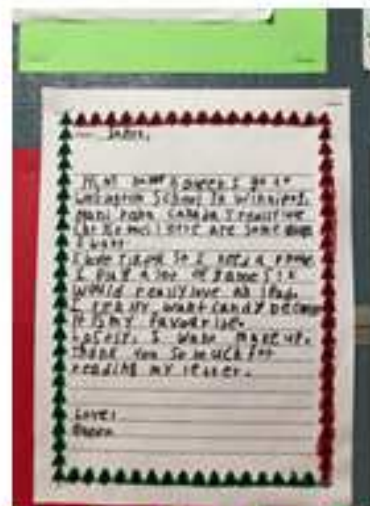 Hi my name is Queen I go to
Wellington School in Winnipeg,
Mani toba Canada I
are some things
I want
I love tiktok so I need a phone
I play a lot of games I
would really love an iPad.
I really want candy because
it is my favourite.
I want make up.
Thank you so much for
reading my letter.
Love,